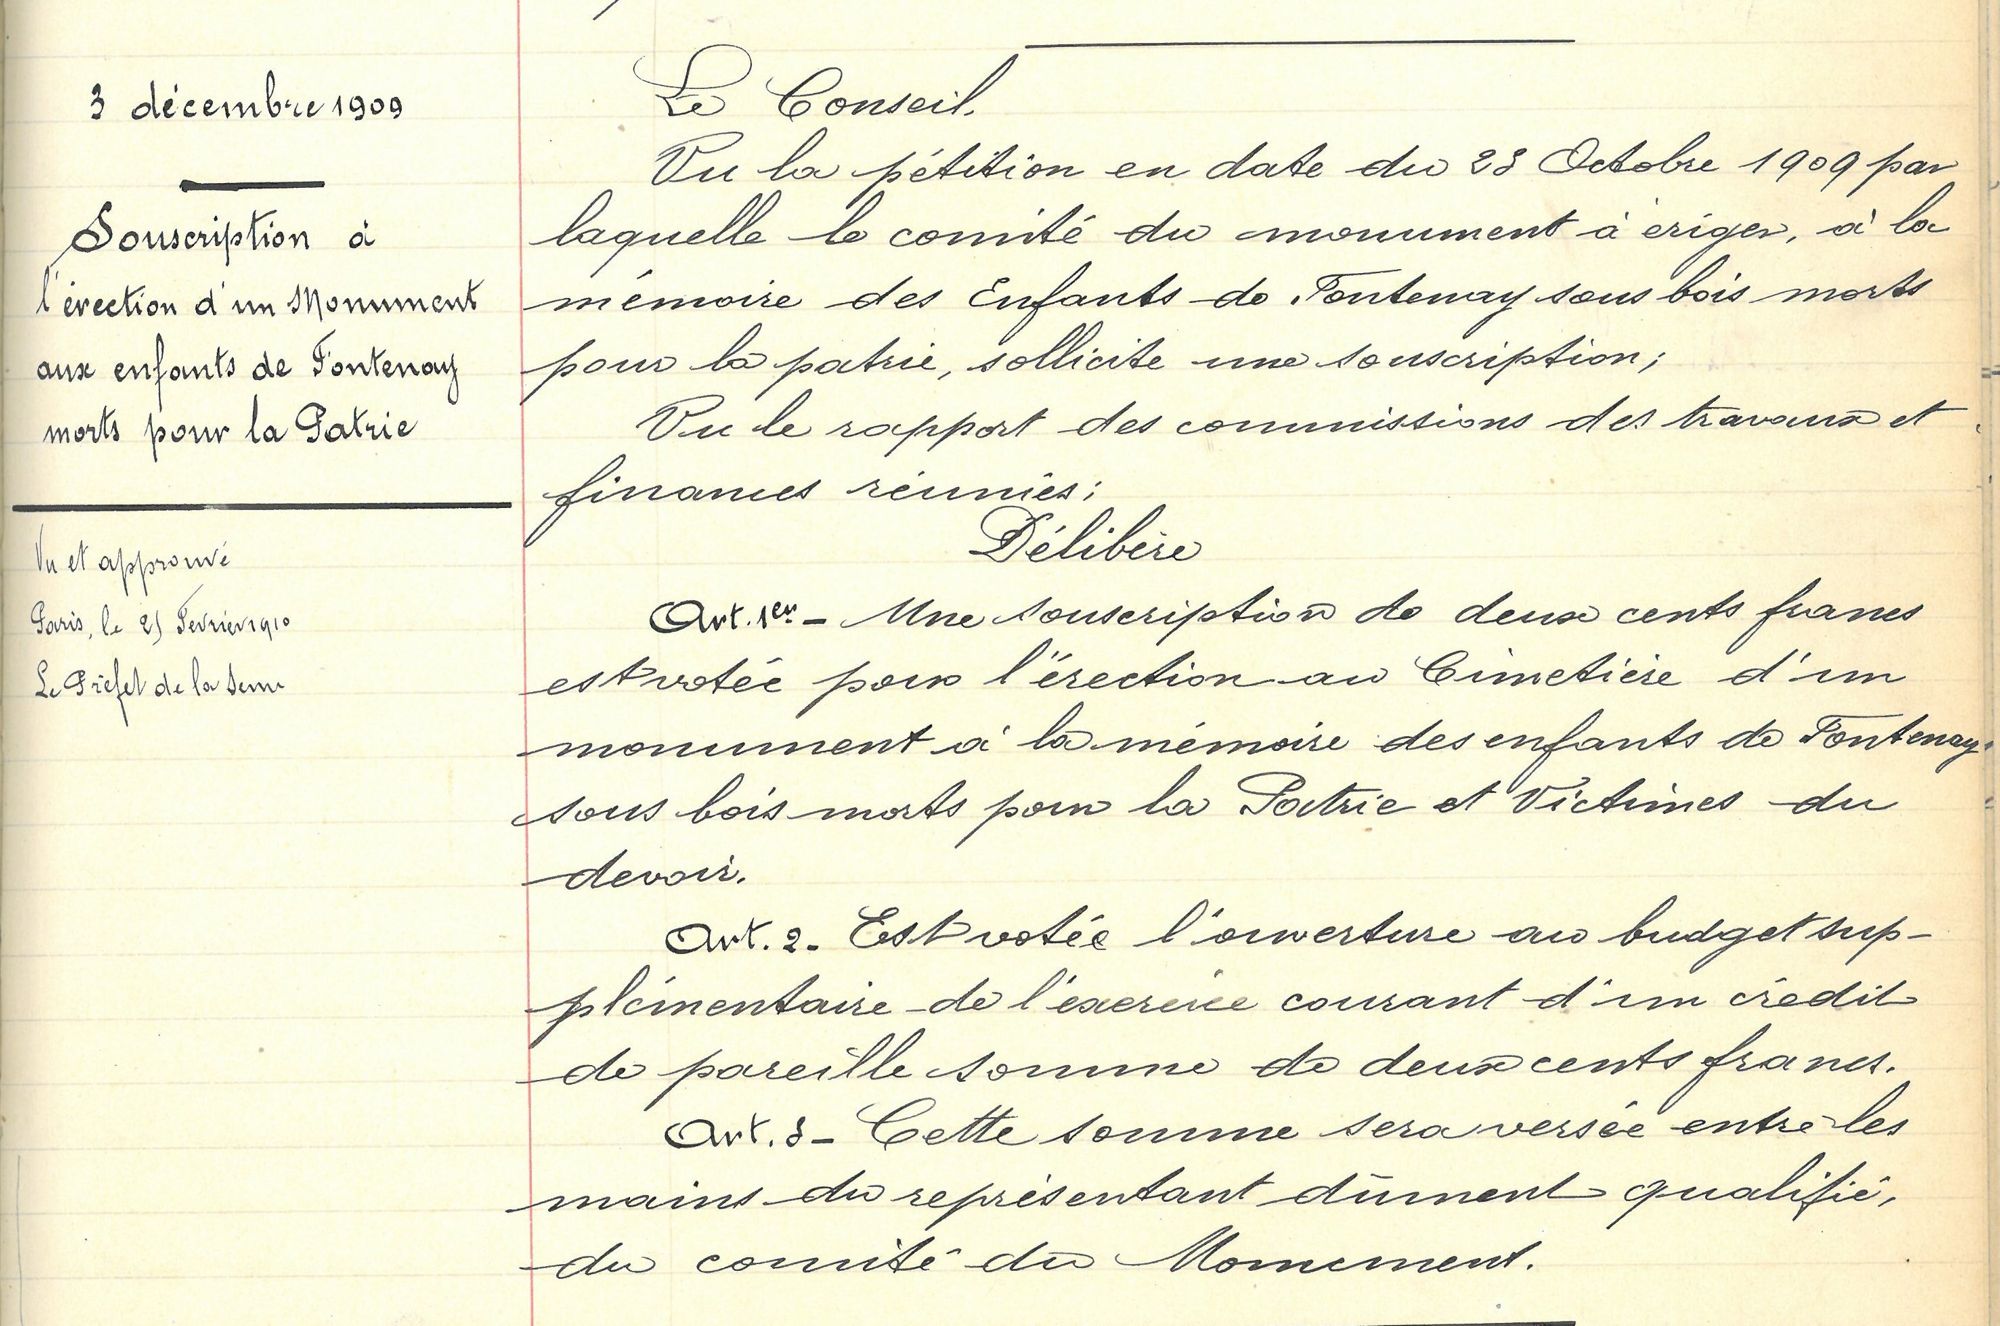 3 décembre 1909
Souscription à
l'érection d'un Monument
aux enfants de Fontenay
morts pour la Patrie
Vu et approuvé
Paris, le Février 1910
Le Préfet de la Seine
Le Conseil.
Vu la pétition en date du 23 Octobre 1909 par
laquelle le comité du monument à ériger, à la
mémoire des Enfants de Fontenay sous bois morts
pour la patrie, sollicite une souscription;
Vu le rapport des commissions des travaux et
finances réunies;
Délibère
Art. 1er. - Une souscription de deux cents francs
est votée pour l'érection au Cimetière d'un
monument à la mémoire des enfants de Fontenay-
sous bois morts pour la Patrie et Victimes du
devoir.
Art. 2 - Est votée l'ouverture au budget sup-
plémentaire de l'exercice courant d'un crédit
de pareille somme de deux cents francs.
Art. 3 - Cette somme sera versée entre les
mains du représentant dûment qualifié,
du comité du Monument.